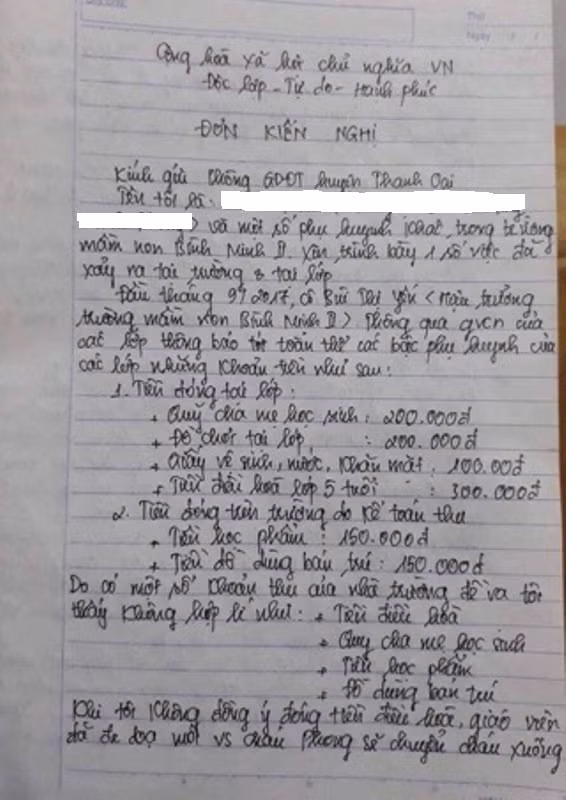 Cộng hoà xã hội chủ nghĩa VN
Độc lập - Tự do - Hạnh phúc
ĐƠN KIẾN NGHỊ
Kính gửi Phòng GDĐT huyện Thanh Oai
Tên tôi là:
> và một số phụ huynh khác trong trường
mầm non Bình Minh II. Xin trình bày 1 số việc đã
xảy ra tại trường & tại lớp
Đầu tháng 9/2017, cô Bùi Thị Yến <Hiệu trưởng
trường mầm non Bình Minh II> Thông qua gvcn của
các lớp thông báo tới toàn thể các bậc phụ huynh của
các lớp những khoản tiền như sau:
1. Tiền đóng tại lớp:
+ Quỹ cha mẹ học sinh: 200.000đ
+ Đồ chơi tại lớp : 200.000đ
+ Giấy vệ sinh, nước, khăn mặt: 100.00đ
+ Tiền điều hoà lớp 5 tuổi : 300.000đ
2. Tiền đóng trên trường do kế toán thu
+ Tiền học phẩm: 150.000đ
+ Tiền đồ dùng bán trú: 150.000đ
Do có một số khoản thu của nhà trường đề ra tôi
thấy không hợp lí như: + Tiền điều hoà
+ Quỹ cha mẹ học sinh
+ Tiền học phẩm
+ Đồ dùng bán trú
Khi tôi không đồng ý đóng tiền điều hoà, giáo viên
đã đe doạ tôi vs cháu Phong sẽ chuyển cháu xuống